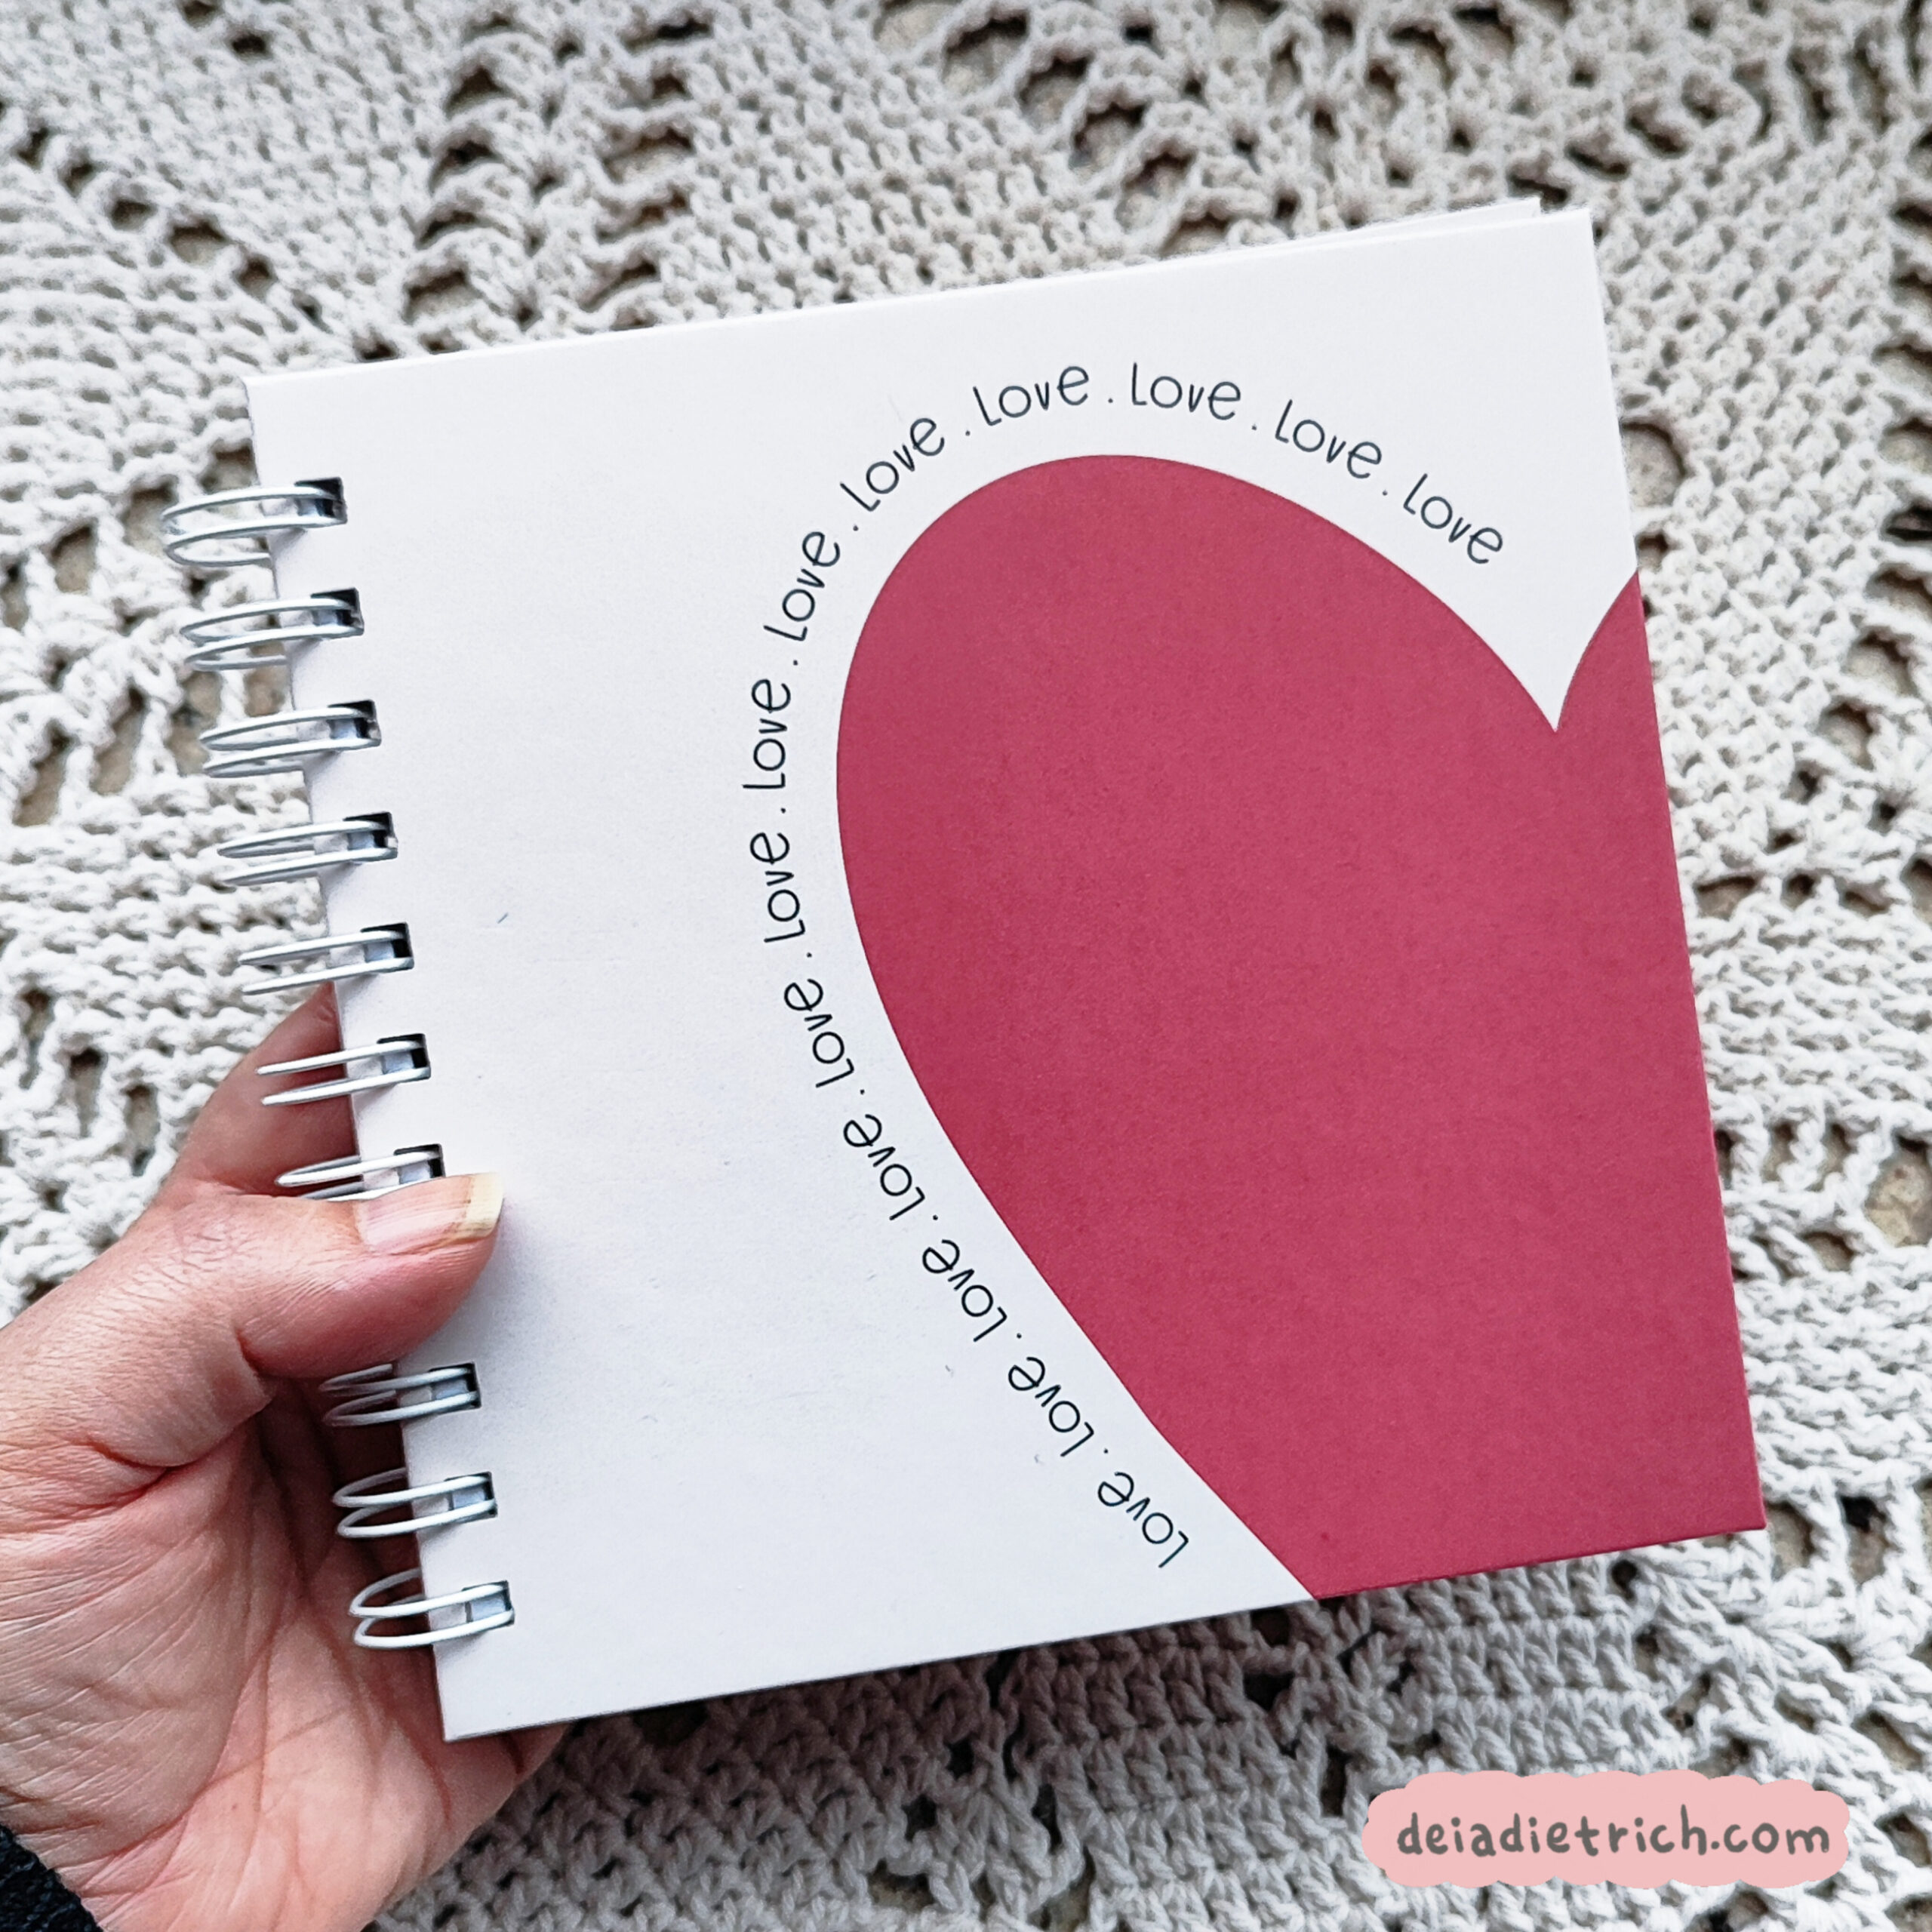 love . love . love . love . love . love . love . love . love . love . love . love
deiadietrich.com